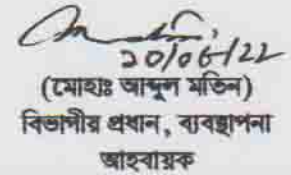 20/06/22
(মোহাঃ আব্দুল মতিন)
বিভাগীয় প্রধান, ব্যবস্থাপনা
আহবায়ক